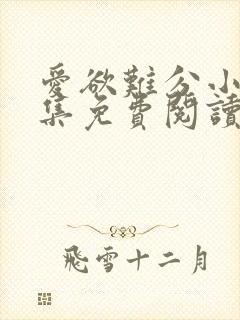 愛欲難分小
集免費閱讀
飛雪十二月